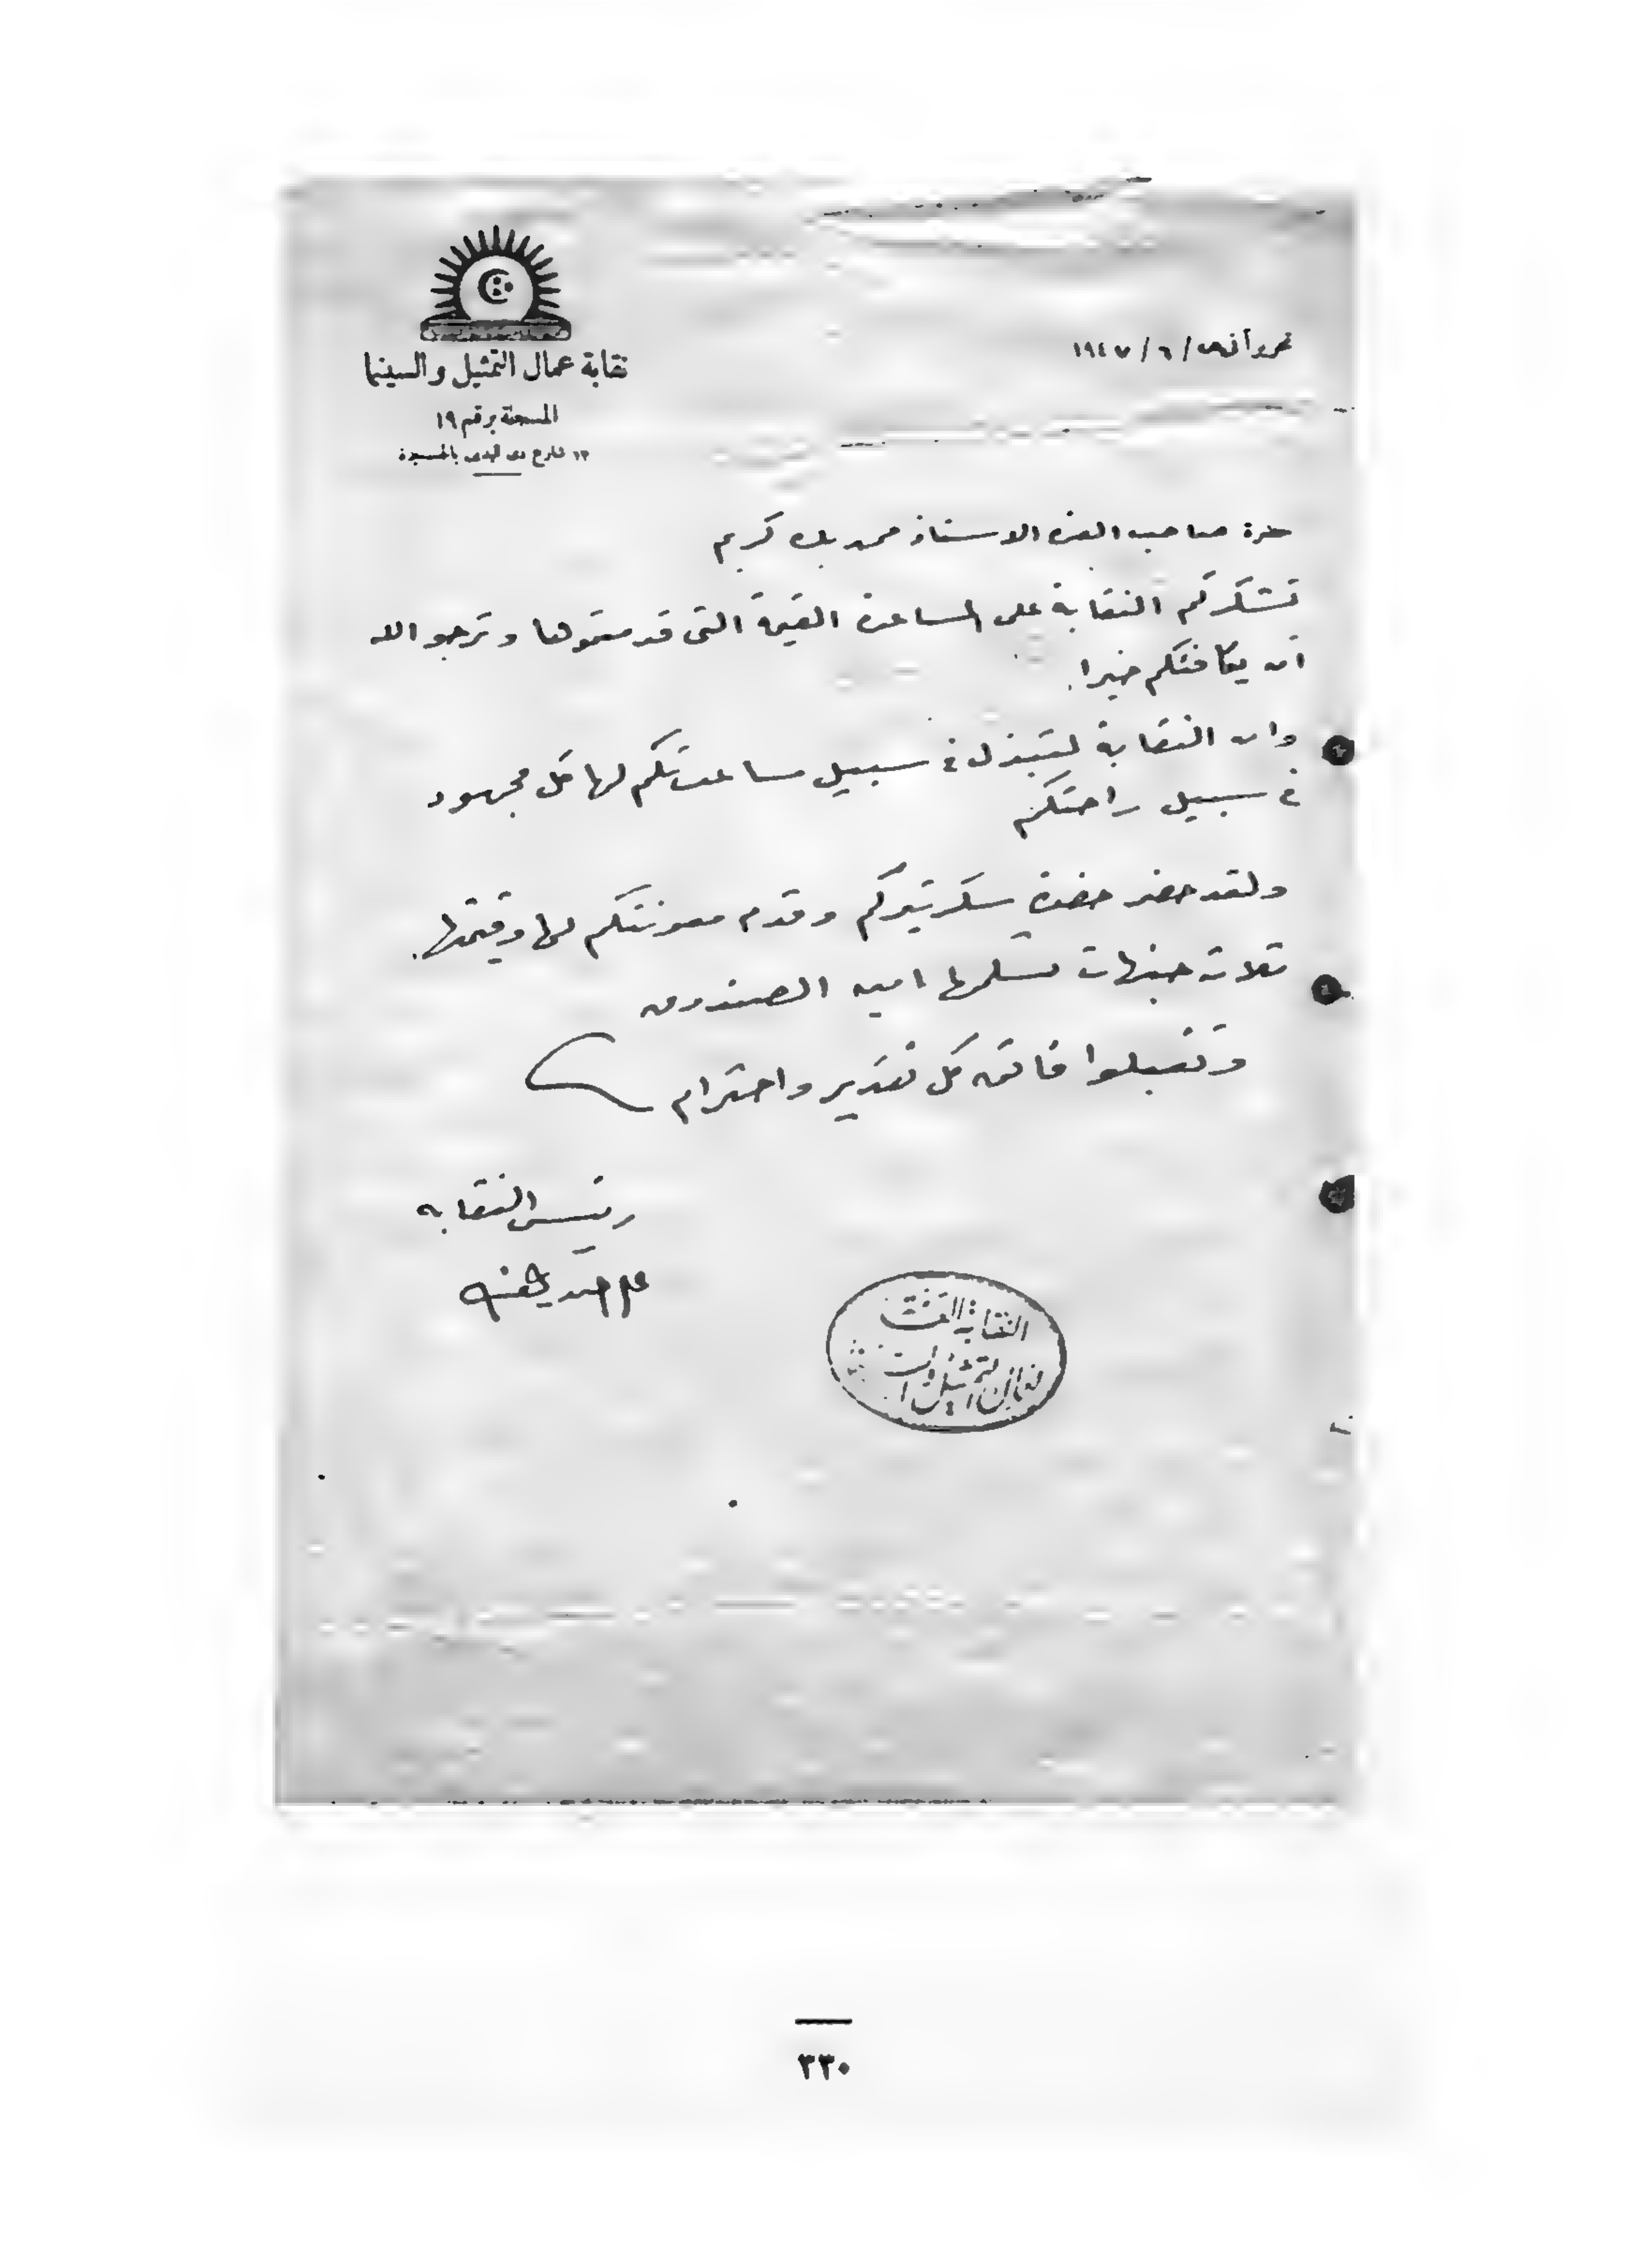 نقابة عمال التمثيل والسينما
المسجلة برقم ١٩
١٣ شارع
تحريرا فى / ٦ / ١٩٤٧
حضرة صاحب العزة الاستاذ محمد بك كريم
تشكركم النقابة على المساعدة القيمة التى قدمتموها وترجو الله
ان يكافئكم خيرا.
وان النقابة لتبذل فى سبيل مساعدتكم لها كل مجهود
فى سبيل راحتكم
ولقد حضر حضرة سكرتيركم وقدم معونتكم لها وقيمتها.
ثلاثة جنيهات تسلمها امين الصندوق
وتقبلوا فائق كل تقدير واحترام
رئيس النقابه
النقابة
٣٣٠